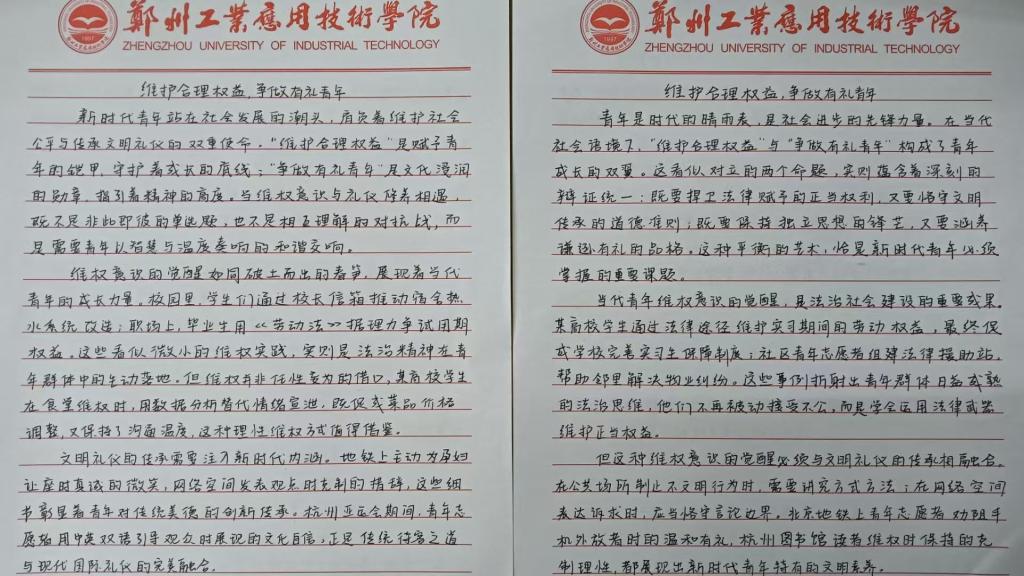 鄭州工業應用技術學院
ZHENGZHOU UNIVERSITY OF INDUSTRIAL TECHNOLOGY
维护合理权益,争做有礼青年
新时代青年站在社会发展的潮头,肩负着维护社会
公平与传承文明礼仪的双重使命。“维护合理权益”是赋予青
年的铠甲,守护着成长的底线;“争做有礼青年”是文化浸润
的勋章,指引着精神的高度。当维权意识与礼仪修养相遇,
既不是非此即彼的单选题,也不是相互理解的对抗战,而
是需要青年以智慧与温度奏响的和谐交响。
维权意识的觉醒如同破土而出的春笋,展现着当代
青年的成长力量。校园里,学生们通过校长信箱推动宿舍热
水系统改造;职场上,毕业生用《劳动法》据理力争试用期
权益。这些看似微小的维权实践,实则是法治精神在青
年群体中的生动落地。但维权并非任性妄为的借口,某高校学生
在食堂维权时,用数据分析替代情绪宣泄,既促成菜品价格
调整,又保持了沟通温度,这种理性维权方式值得借鉴。
文明礼仪的传承需要注入新时代内涵。地铁上主动为孕妇
让座时真诚的微笑,网络空间发表观点时克制的措辞,这些细
节彰显着青年对传统美德的创新传承。杭州亚运会期间,青年志
愿者用中英双语引导观众时展现的文化自信,正是传统待客之道
与现代国际礼仪的完美融合。
鄭州工業應用技術學院
ZHENGZHOU UNIVERSITY OF INDUSTRIAL TECHNOLOGY
维护合理权益,争做有礼青年
青年是时代的晴雨表,是社会进步的先锋力量。在当代
社会语境下,“维护合理权益”与“争做有礼青年”构成了青年
成长的双翼。这看似对立的两个命题,实则蕴含着深刻的
辩证统一:既要捍卫法律赋予的正当权利,又要恪守文明
传承的道德准则;既要保持独立思想的锋芒,又要涵养
谦逊有礼的品格。这种平衡的艺术,恰是新时代青年必须
掌握的重要课题。
当代青年维权意识的觉醒,是法治社会建设的重要成果。
某高校学生通过法律途径维护实习期间的劳动权益,最终促
成学校完善实习生保障制度;社区青年志愿者组建法律援助站,
帮助邻里解决物业纠纷。这些事例折射出青年群体日益成熟
的法治思维,他们不再被动接受不公,而是学会运用法律武器
维护正当权益。
但这种维权意识的觉醒必须与文明礼仪的传承相融合。
在公共场所制止不文明行为时,需要讲究方式方法;在网络空间
表达诉求时,应当恪守言论边界。北京地铁上青年志愿者劝阻手
机外放者时的温和有礼,杭州图书馆读者维权时保持的克
制理性,都展现出新时代青年特有的文明素养。